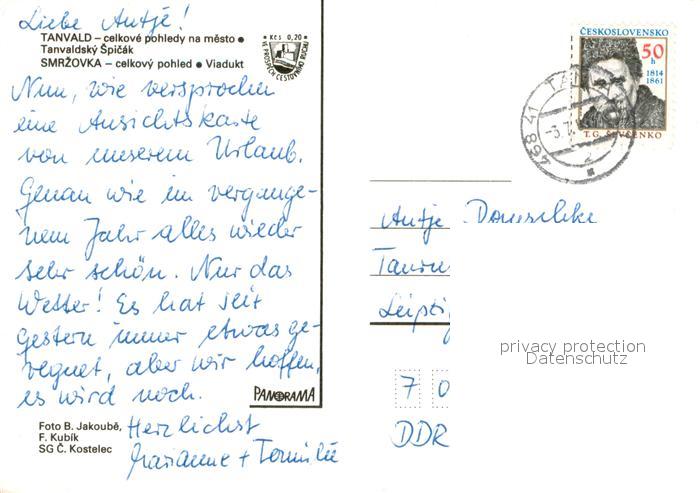 Liebe Antje!
TANVALD – celkové pohledy na město ●
Tanvaldský Špičák
SMRŽOVKA – celkový pohled ● Viadukt
Kčs 0,20
VE PROSPĚCH CESTOVNÍHO RUCHU
Nun, wie versprochen
eine Ansichtskarte
von unserem Urlaub.
Genau wie im vergange-
nem Jahr alles wieder
sehr schön. Nur das
Wetter! Es hat seit
gestern immer etwas ge-
regnet, aber wir hoffen,
es wird noch.
Herzlichst
Marianne +
PANORAMA
Foto B. Jakoubě,
F. Kubík
SG Č. Kostelec
ČESKOSLOVENSKO
50
h
1814
1861
T.G. ŠEVČENKO
468 41 TAN
-3.7.
Antje
Leipzig
7 0
DDR
privacy protection
Datenschutz